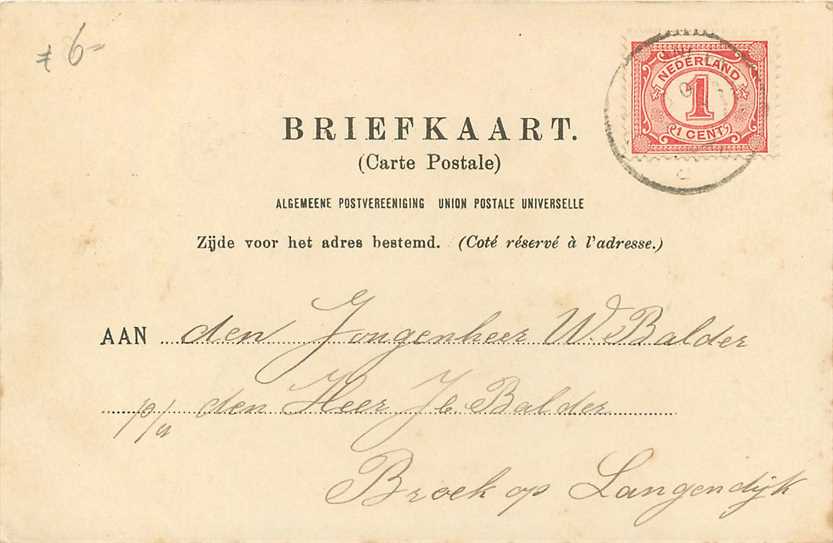 6-
NEDERLAND
1
1 CENT
BRIEFKAART.
(Carte Postale)
ALGEMEENE POSTVEREENIGING UNION POSTALE UNIVERSELLE
Zijde voor het adres bestemd. (Coté réservé à l'adresse.)
AAN den Jongenheer W. Balder
p/a den Heer Jb Balder
Broek op Langendijk